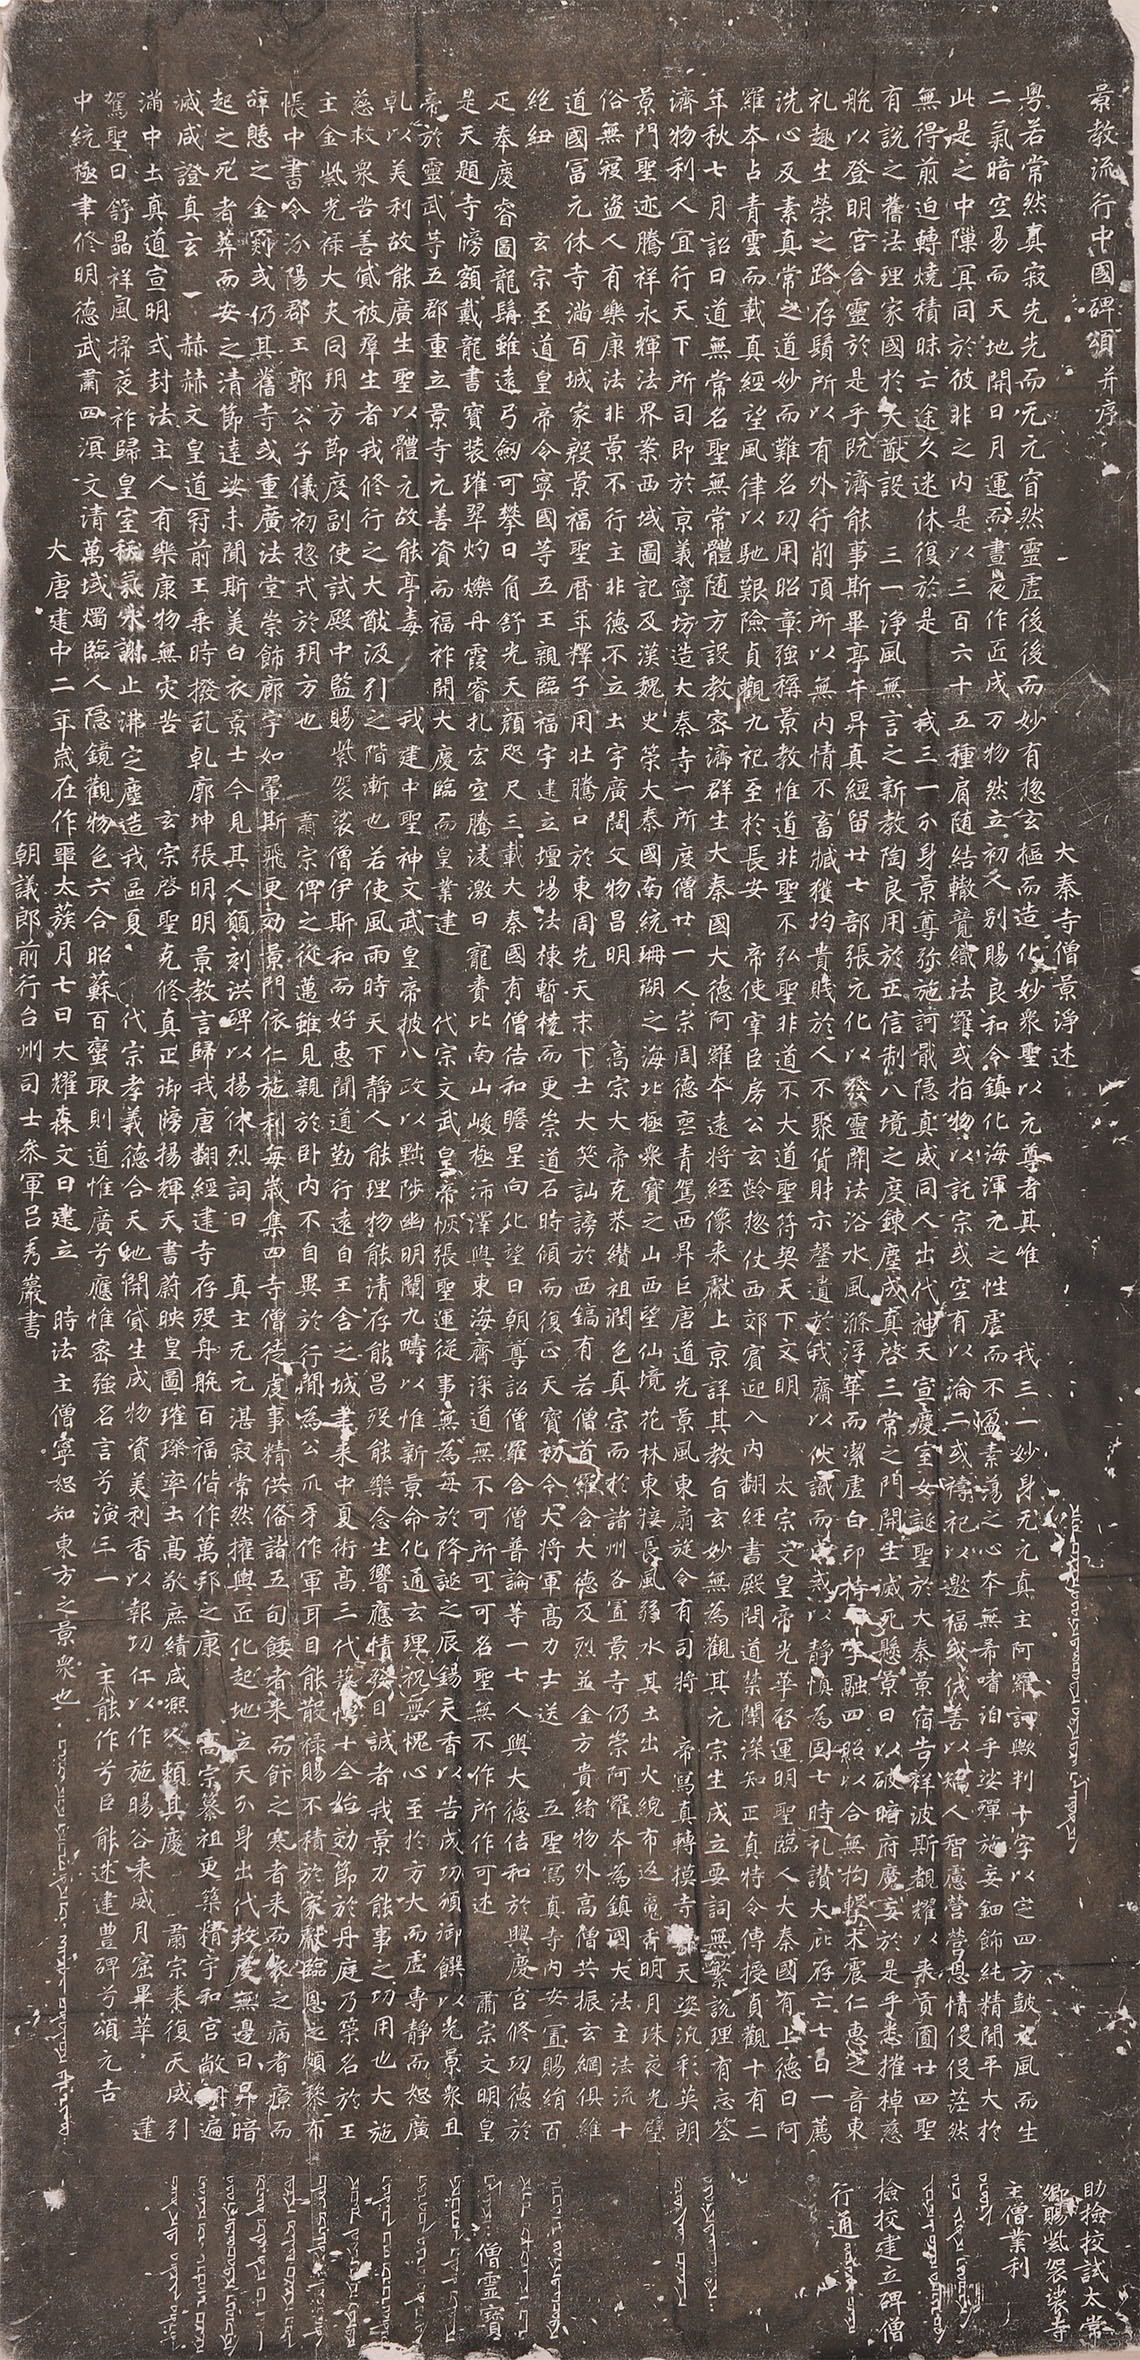 景教流行中國碑頌并序
大秦寺僧景淨述
粵若常然真寂先先而无元窅然靈虛後後而妙有惣玄樞而造化妙衆聖以元尊者其唯 我三一妙身无元真主阿羅訶歟判十字以定四方鼓元風而生
二氣暗空易而天地開日月運而晝夜作匠成万物然立初人別賜良和令鎮化海渾元之性虛而不盈素蕩之心本無希嗜洎乎娑殫施妄鈿飾純精閒平大於
此是之中隟冥同於彼非之內是以三百六十五種肩随結轍競織法羅或指物以託宗或空有以淪二或禱祀以邀福或伐善以矯人智慮營營恩情役役茫然
無得煎迫轉燒積昧亡途久迷休復於是 我三一分身景尊弥施訶戢隱真威同人出代神天宣慶室女誕聖於大秦景宿告祥波斯覩耀以来貢圎廿四聖
有說之舊法理家國於大猷設 三一淨風無言之新教陶良用於正信制八境之度鍊塵成真啓三常之門開生滅死懸景日以破暗府魔妄於是乎悉摧棹慈
航以登明宮含靈於是乎既濟能事斯畢亭午昇真經留廿七部張元化以發靈關法浴水風滌浮華而潔虛白印持十字融四照以合無拘擊木震仁惠之音東
礼趣生榮之路存鬚所以有外行削頂所以無內情不畜臧獲均貴賤於人不聚貨財示罄遺於我齋以伏識而成戒以靜慎為固七時礼讚大庇存亡七日一薦
洗心反素真常之道妙而難名功用昭彰強稱景教惟道非聖不弘聖非道不大道聖符契天下文明 太宗文皇帝光華啓運明聖臨人大秦國有上德曰阿
羅本占青雲而載真經望風律以馳艱險貞觀九祀至於長安 帝使宰臣房公玄齡惣仗西郊賓迎入內翻經書殿問道禁闈深知正真特令傳授貞觀十有二
年秋七月詔曰道無常名聖無常體随方設教密濟群生大秦國大德阿羅本遠將經像来獻上京詳其教旨玄妙無為觀其元宗生成立要詞無繁說理有忘筌
濟物利人宜行天下所司即於京義寧坊造大秦寺一所度僧廿一人宗周德喪青駕西昇巨唐道光景風東扇旋令有司將 帝寫真轉摸寺壁天姿汎彩英朗
景門聖迹騰祥永輝法界案西域圖記及漢魏史策大秦國南統珊瑚之海北極衆寶之山西望仙境花林東接長風弱水其土出火綄布返魂香明月珠夜光璧
俗無寇盜人有樂康法非景不行主非德不立土宇廣闊文物昌明 高宗大帝克恭纘祖潤色真宗而於諸州各置景寺仍崇阿羅本為鎮國大法主法流十
道國冨元休寺滿百城家殷景福聖曆年釋子用壯騰口於東周先天末下士大笑訕謗於西鎬有若僧首羅含大德及烈並金方貴緒物外高僧共振玄綱俱維
絕紐 玄宗至道皇帝令寧國等五王親臨福宇建立壇場法棟暫橈而更崇道石時傾而復正天寶初令大將軍高力士送 五聖寫真寺內安置賜絹百
疋奉慶睿圖龍髯雖遠弓劒可攀日角舒光天顏咫尺三載大秦國有僧佶和瞻星向化望日朝尊詔僧羅含僧普論等一七人與大德佶和於興慶宮修功德於
是天題寺牓額戴龍書寶裝璀翠灼爍丹霞睿扎宏空騰淩激日寵賚比南山峻極沛澤與東海齊深道無不可所可可名聖無不作所作可述 肅宗文明皇
帝於靈武等五郡重立景寺元善資而福祚開大慶臨而皇業建 代宗文武皇帝恢張聖運從事無為每於降誕之辰錫天香以告成功頒御饌以光景衆且
乹以美利故能廣生聖以體元故能亭毒 我建中聖神文武皇帝披八政以黜陟幽明闡九疇以惟新景命化通玄理祝無愧心至於方大而虛專靜而恕廣
慈救衆苦善貸被羣生者我修行之大猷汲引之階漸也若使風雨時天下靜人能理物能清存能昌歿能樂念生響應情發目誠者我景力能事之功用也大施
主金紫光祿大夫同玥方節度副使試殿中監賜紫袈裟僧伊斯和而好惠聞道勤行遠自王舍之城聿来中夏術高三代藝博十全始効節於丹庭乃策名於王
帳中書令汾陽郡王郭公子儀初惣戎於玥方也 肅宗俾之從邁雖見親於臥內不自異於行間為公爪牙作軍耳目能散祿賜不積於家獻臨恩之頗黎布
辝憩之金罽或仍其舊寺或重廣法堂崇飾廊宇如翬斯飛更効景門依仁施利每歲集四寺僧徒虔事精供俻諸五旬餧者来而飰之寒者来而衣之病者療而
起之死者葬而安之清節達娑未聞斯美白衣景士今見其人願刻洪碑以揚休烈詞曰 真主无元湛寂常然權輿匠化起地立天分身出代救度無邊日昇暗
滅咸證真玄 赫赫文皇道冠前王乘時撥亂乹廓坤張明明景教言歸我唐翻經建寺存歿舟航百福偕作萬邦之康 高宗纂祖更築精宇和宮敞朗遍
滿中土真道宣明式封法主人有樂康物無灾苦 玄宗啓聖克修真正御牓揚輝天書蔚映皇圖璀璨率土高敬庶績咸熙人賴其慶 肅宗来復天威引
駕聖日舒晶祥風掃夜祚歸皇室祅氛永謝止沸定塵造我區夏 代宗孝義德合天地開貸生成物資美利香以報功仁以作施暘谷来威月窟畢萃 建
中統極聿修明德武肅四溟文清萬域燭臨人隱鏡觀物色六合昭蘇百蠻取則道惟廣兮應惟密強名言兮演三一 主能作兮臣能述建豊碑兮頌元吉
大唐建中二年歲在作噩太蔟月七日大耀森文日建立 時法主僧寧恕知東方之景衆也
朝議郎前行台州司士參軍吕秀巖書
助撿挍試太常
卿賜紫袈裟寺
主僧業利
撿挍建立碑僧
行通
僧靈寶